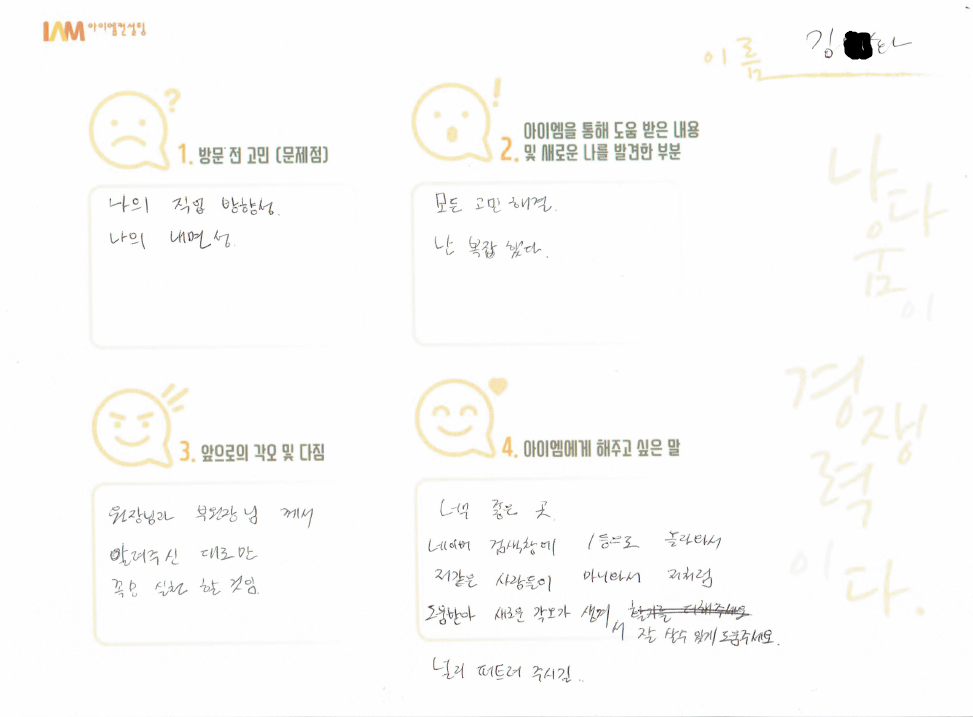 IAM 아이엠컨설팅
이름 김
1. 방문 전 고민 (문제점)
나의 직업 방향성.
나의 내면성.
2. 아이엠을 통해 도움 받은 내용
및 새로운 나를 발견한 부분
모든 고민 해결.
난 복잡 했다.
3. 앞으로의 각오 및 다짐
원장님과 부원장님 께서
알려주신 대로만
꼭 실천 할 것임.
4. 아이엠에게 해주고 싶은 말
너무 좋은 곳
네이버 검색창에 1등으로 올라와서
저같은 사람들이 찾아와서 저처럼
도움받아 새로운 각오가 생겨
서 잘 살수 있게 도움주세요.
널리 퍼트려 주시길..
나다움이
경쟁력이다.